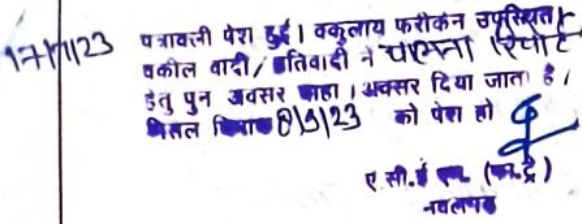 17/7/23 पत्रावली पेश हुई। वकुलाय फरीकेन उपस्थित।
वकील वादी/प्रतिवादी ने रिपोर्ट
हेतु पुन अवसर चाहा। अवसर दिया जाता है।
मिसल दिनांक 8/9/23 को पेश हो
ए सी.ई एम. (फा.ट्रे)
नवलगढ